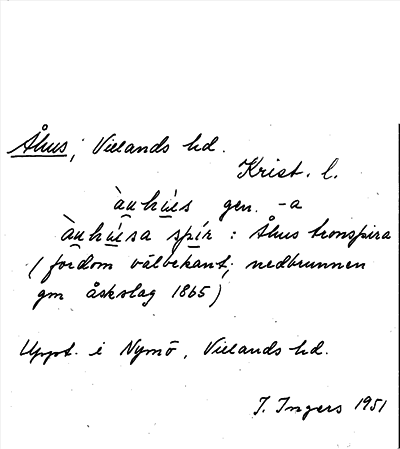 Åhus, Villands hd.
Krist. l.
àu̯hu̯i̯s gen. -a
àu̯hu̯i̯sa spi̯r : Åhus tornspira
(fordom välbekant, nedbrunnen
gm åskslag 1865)
Uppt. i Nymö, Villands hd.
I. Ingers 1951